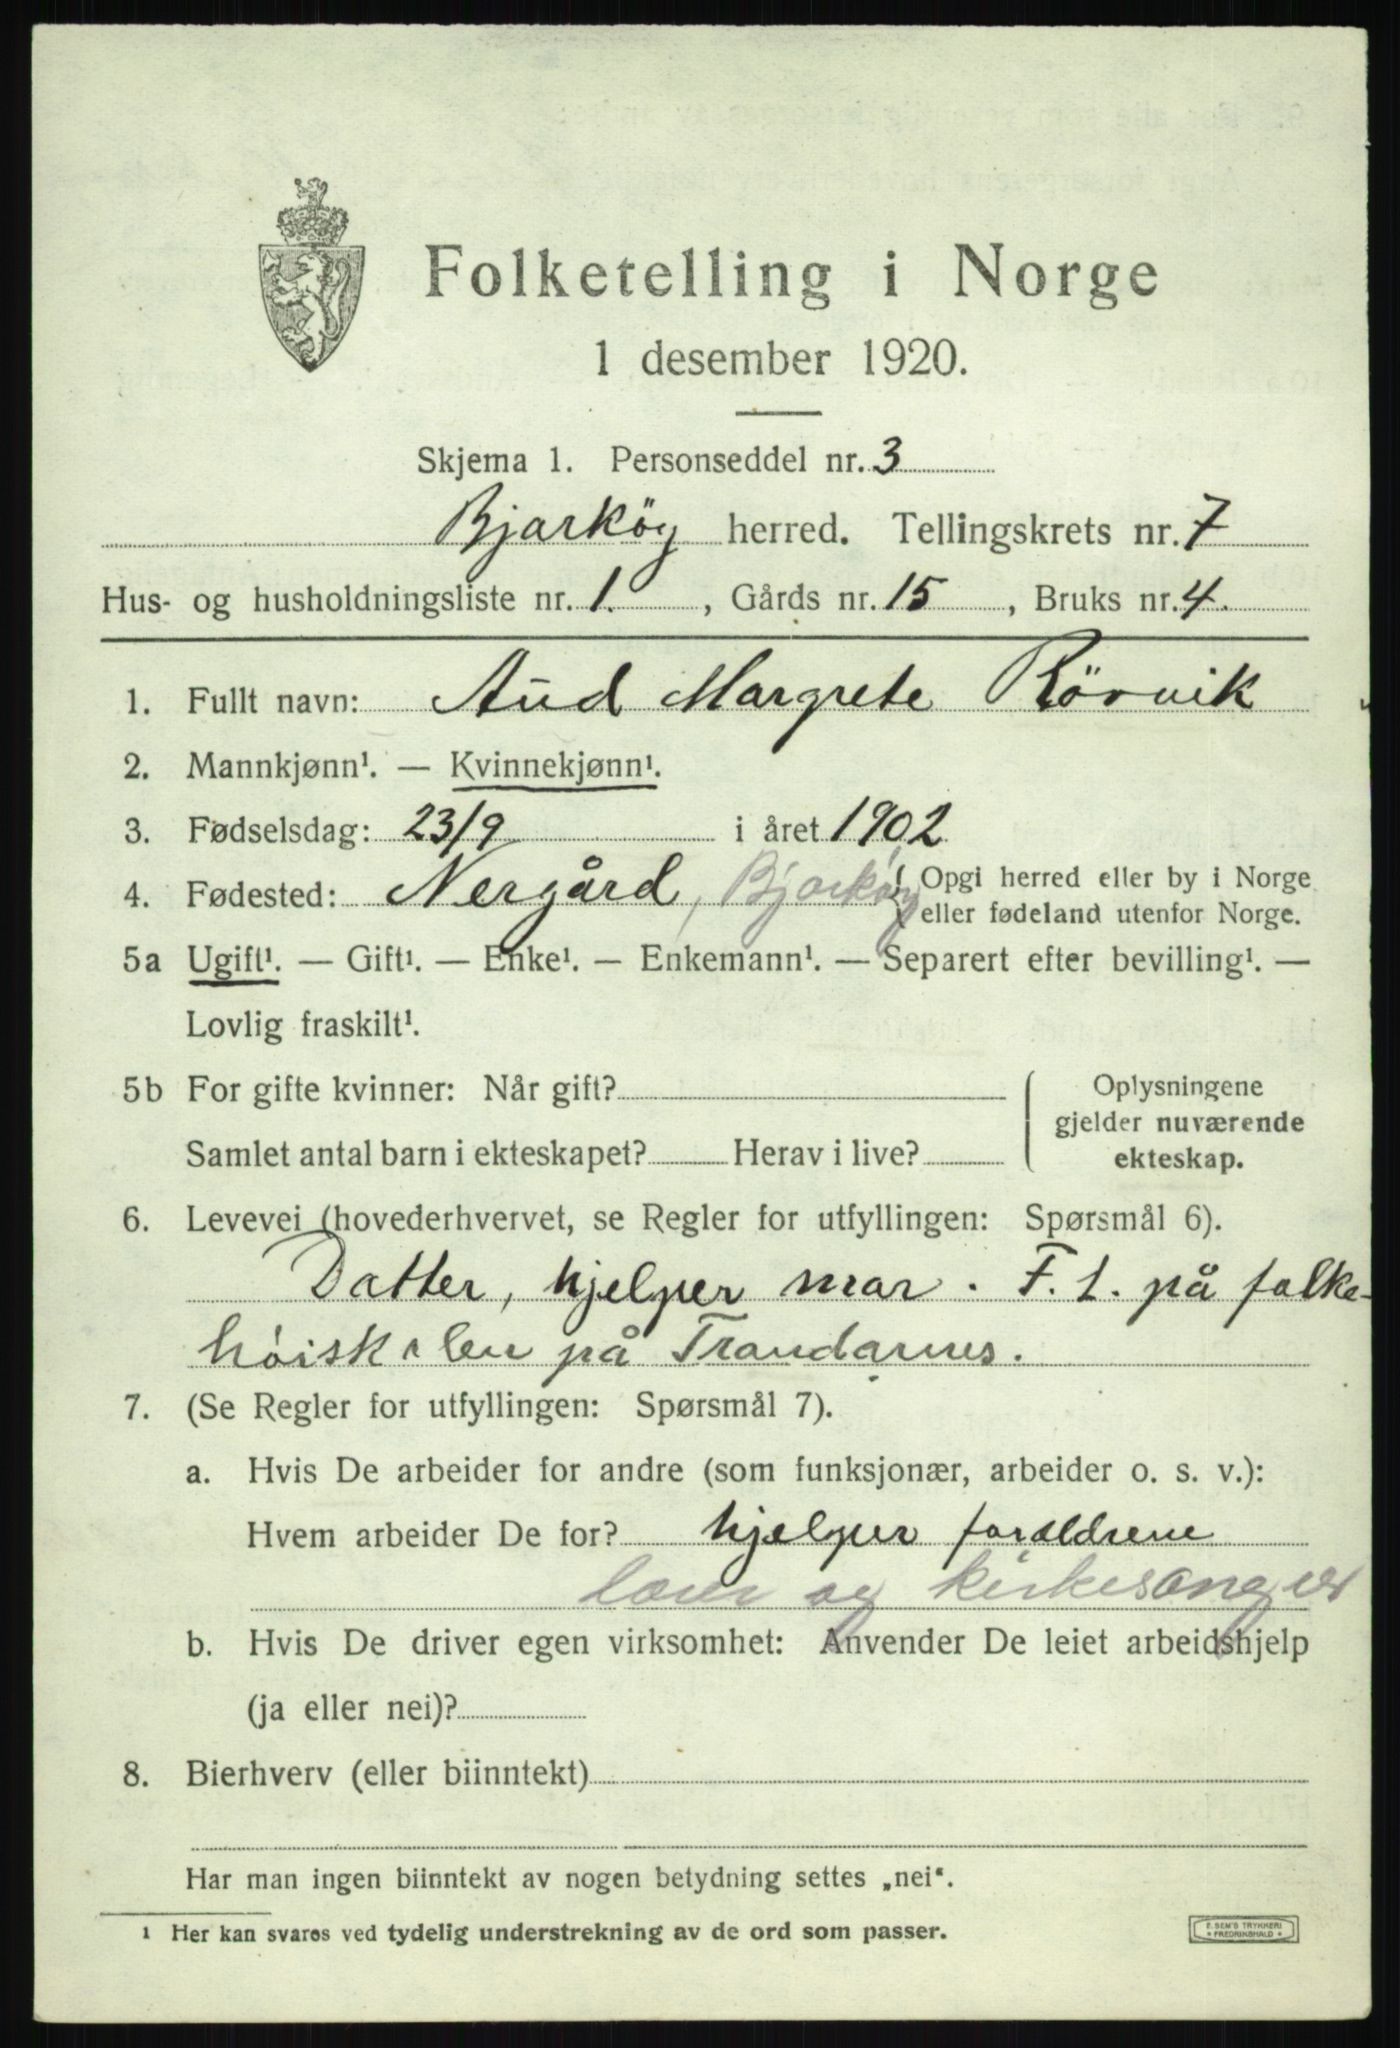 Folketelling i Norge
1 desember 1920.
Skjema 1. Personseddel nr. 3
Bjarköy herred. Tellingskrets nr. 7
Hus- og husholdningsliste nr. 1. , Gårds nr. 15 , Bruks nr. 4.
1. Fullt navn: Aud Margrete Rörvik
2. Mannkjønn¹. — Kvinnekjønn¹.
3. Fødselsdag: 23/9 i året 1902
4. Fødested: Nergård, Bjarköy { Opgi herred eller by i Norge
eller fødeland utenfor Norge.
5a Ugift¹. — Gift¹. — Enke¹. — Enkemann¹. — Separert efter bevilling¹. —
Lovlig fraskilt¹.
5b For gifte kvinner: Når gift?
Samlet antal barn i ekteskapet? Herav i live?
Oplysningene
gjelder nuværende
ekteskap.
6. Levevei (hovederhvervet, se Regler for utfyllingen: Spørsmål 6).
Datter, hjelper mor. F. t. på folke-
høiskolen på Trondarnes.
7. (Se Regler for utfyllingen: Spørsmål 7).
a. Hvis De arbeider for andre (som funksjonær, arbeider o. s. v.):
Hvem arbeider De for? hjelper forældrene
lærer og kirkesanger
b. Hvis De driver egen virksomhet: Anvender De leiet arbeidshjelp
(ja eller nei)?
8. Bierhverv (eller biinntekt)
Har man ingen biinntekt av nogen betydning settes „nei“.
¹ Her kan svares ved tydelig understrekning av de ord som passer.
E. SEM'S TRYKKERI
* FREDRIKSHALD *